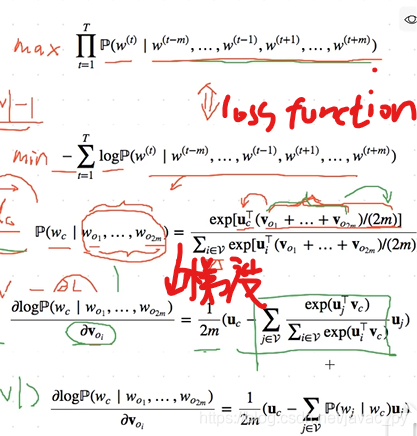 max $\prod_{t=1}^{T} \mathbb{P}(w^{(t)} \mid w^{(t-m)}, \ldots, w^{(t-1)}, w^{(t+1)}, \ldots, w^{(t+m)})$
loss function
|-1
min $-\sum_{t=1}^{T} \log \mathbb{P}(w^{(t)} \mid w^{(t-m)}, \ldots, w^{(t-1)}, w^{(t+1)}, \ldots, w^{(t+m)})$
$\mathbb{P}(w_c \mid w_{o_1}, \ldots, w_{o_{2m}}) = \frac{\exp[\mathbf{u}_c^\top (\mathbf{v}_{o_1} + \ldots + \mathbf{v}_{o_{2m}})/(2m)]}{\sum_{i \in \mathcal{V}} \exp[\mathbf{u}_i^\top (\mathbf{v}_{o_1} + \ldots + \mathbf{v}_{o_{2m}})/(2m)]}$
梯度
$\frac{\partial \log \mathbb{P}(w_c \mid w_{o_1}, \ldots, w_{o_{2m}})}{\partial \mathbf{v}_{o_i}} = \frac{1}{2m}(\mathbf{u}_c - \sum_{j \in \mathcal{V}} \frac{\exp(\mathbf{u}_j^\top \mathbf{v}_c)}{\sum_{i \in \mathcal{V}} \exp(\mathbf{u}_i^\top \mathbf{v}_c)} \mathbf{u}_j)$
$\frac{\partial \log \mathbb{P}(w_c \mid w_{o_1}, \ldots, w_{o_{2m}})}{\partial \mathbf{v}_{o_i}} = \frac{1}{2m}(\mathbf{u}_c - \sum_{j \in \mathcal{V}} \mathbb{P}(w_j \mid w_c)\mathbf{u}_j)$